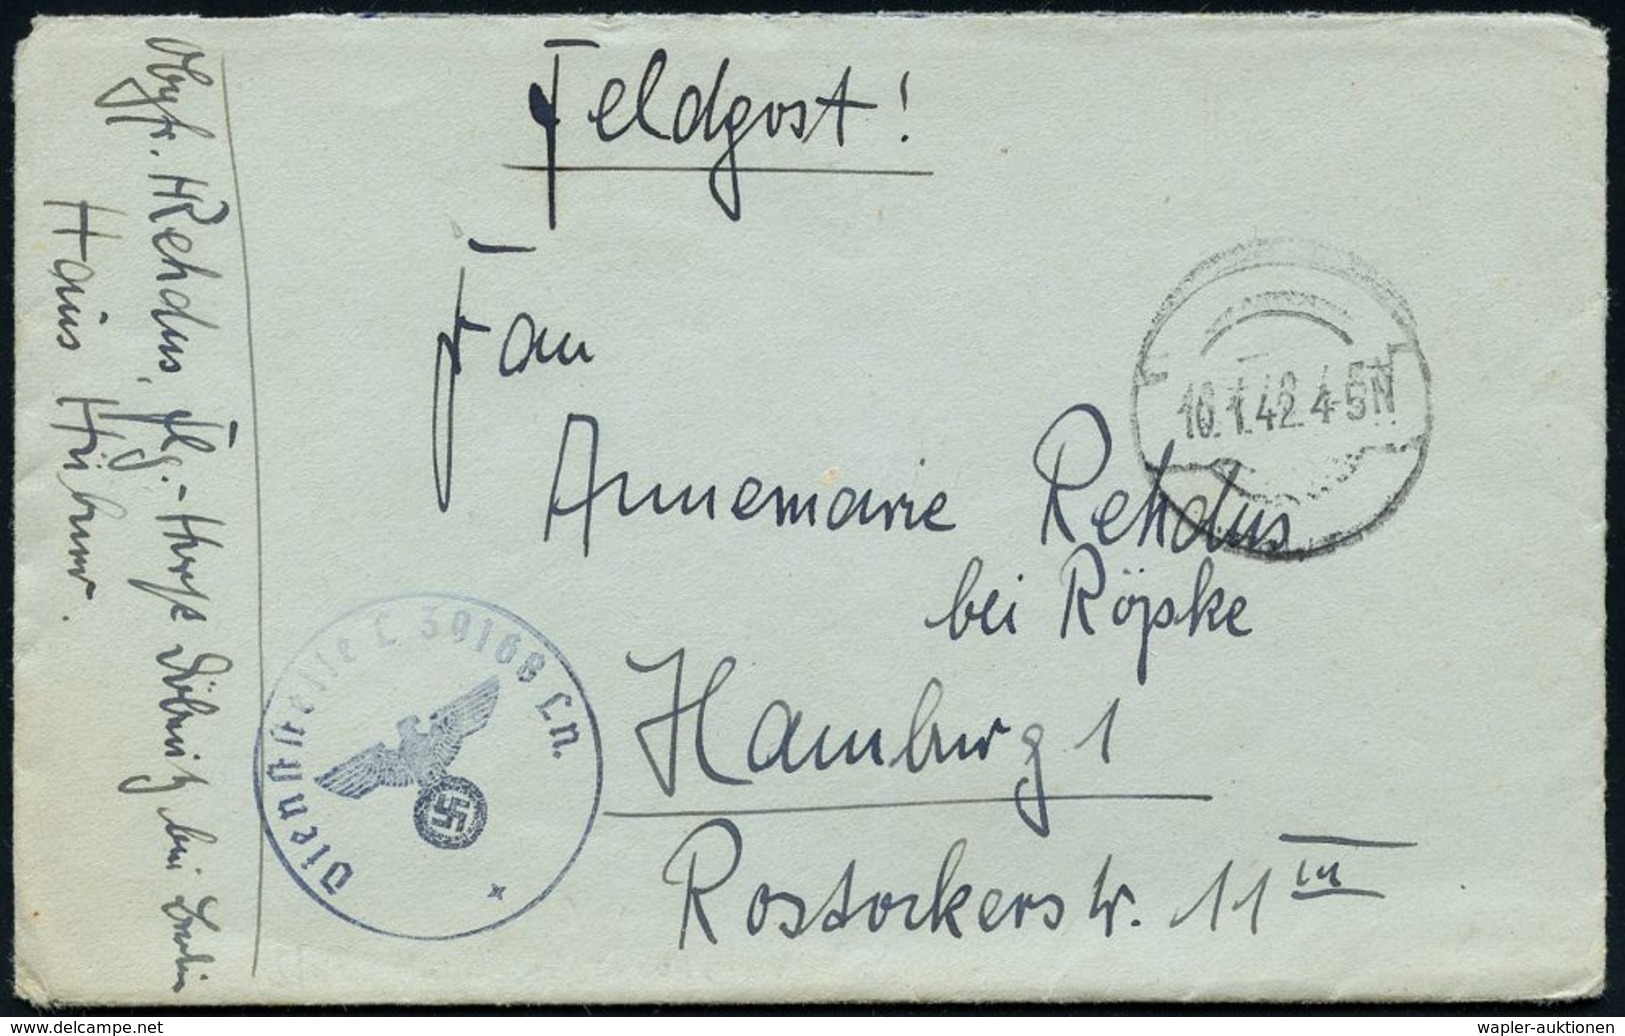 Feldpost!
Frau
Annemarie Rehdus
bei Röpke
Hamburg 1
Rostockerstr. 11 III
10.1.42.4-5N
Dienststelle L 39168 L.N.
Obgfr. H Rehdus, Flg.-Horst Döberitz bei Berlin
Haus Hübner.
www.delcampe.net
wapler-auktionen